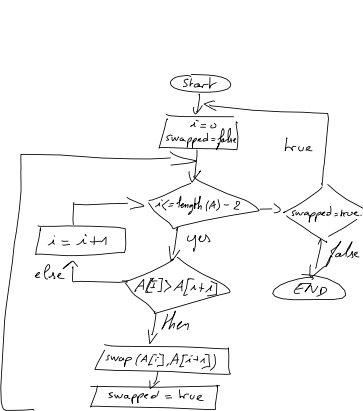 Start
i = 0
swapped = false
true
i <= length (A) - 2
swapped = true
yes
i = i + 1
false
else
A[i] > A[i+1]
END
then
swap (A[i], A[i+1])
swapped = true